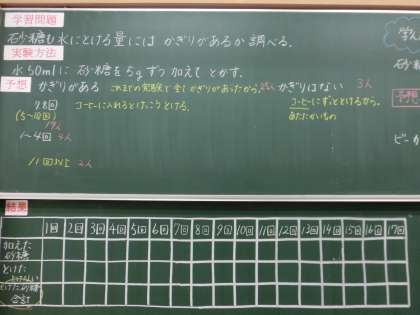 学習問題
砂糖も水にとける量には かぎりがあるか 調べる.
実験方法
水50mlに 砂糖を5gずつ 加えて とかす.
予想
かぎりがある これまでの実験で全てかぎりがあったから。
かぎりはない 3人
コーヒーに入れるとけっこうとける。
コーヒーにずっととけるから。
あたたかいもの
(5~10回)
19人
1~4回
11回以上 2人
学
砂糖
予想
ビーカ
結果
1回 2回 3回 4回 5回 6回 7回 8回 9回 10回 11回 12回 13回 14回 15回 16回 17回
加えた
砂糖
とけた
とけた砂糖
合計